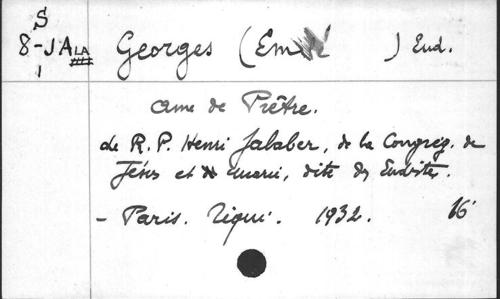 S
8-JALA
1
Georges (Em ) Eud.
ame de Prêtre.
Le R. P. Henri Jalaber, de la Congrég. de
Jésus et Marie, dite des Eudistes.
- Paris. Tiqui. 1932. 16°